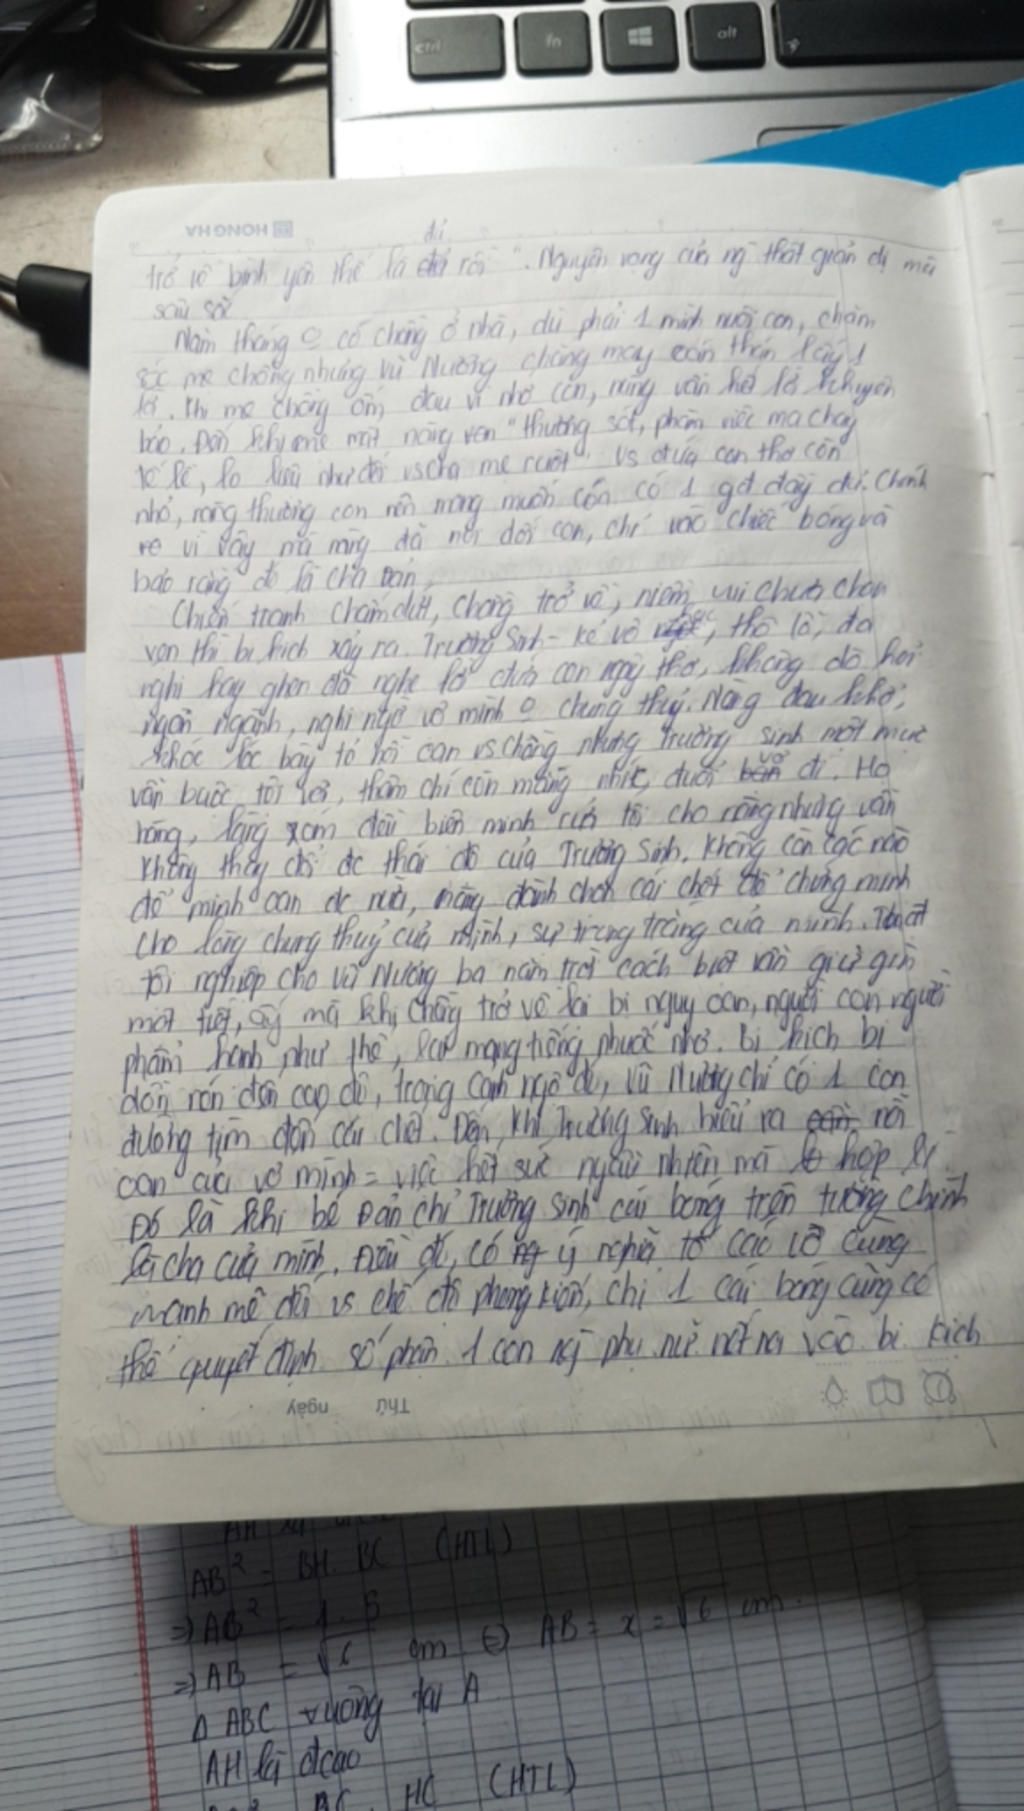 ctrl fn alt
HONG HA
đủ
trở về bình yên thế là đủ rồi". Nguyện vọng của ng thật giản dị mà
sâu sắc
Năm tháng o có chồng ở nhà, dù phải 1 mình nuôi con, chăm
sóc mẹ chồng nhưng Vũ Nương chẳng may oán thán lấy 1
lời. Khi mẹ chồng ốm, đau vì nhớ con, nàng vẫn hết lời khuyên
bảo. Đến khi mẹ mất nàng vẹn "thương sót, phàm việc ma chay
tế lễ, lo liệu như đối vs cha mẹ ruột" vs đứa con thơ còn
nhỏ, nàng thương con nên mong muốn con có 1 gđ đầy đủ. Chính
vì vậy mà nàng đã nói dối con, chỉ vào chiếc bóng và
bảo rằng đó là cha Đản
Chiến tranh chấm dứt, chồng trở về, niềm vui chưa chọn
vẹn thì bi kịch xảy ra. Trương Sinh - kẻ vô học, thô lỗ, đa
nghi hay ghen đã nghe lời đứa con ngây thơ, không dò hỏi
ngọn ngành, nghi ngờ vợ mình o chung thuỷ. Nàng đau khổ,
khóc lóc bày tỏ nỗi oan vs chồng nhưng Trương Sinh một mực
vẫn buộc tội vợ, thậm chí còn mắng nhiếc, đuổi vợ đi. Họ
hàng, làng xóm đều biện minh cho nàng nhưng vẫn
không thay đổi đc thái độ của Trương Sinh. Không còn cách nào
để minh oan đc nữa, nàng đành chọn cái chết để chứng minh
cho lòng chung thuỷ của mình, sự trong trắng của mình. Thật
tội nghiệp cho Vũ Nương ba năm trời cách biệt vẫn giữ gìn
một tiết, ấy mà khi chồng trở về lại bị nguy oan, người con người
phẩm hạnh như thế, lại mang tiếng nhuốc nhơ. Bi kịch bị
dồn nén đến cao độ, trong cảnh ngộ đó, Vũ Nương chỉ có 1 con
đường tìm đến cái chết. Đến khi Trương Sinh hiểu ra nỗi
oan của vợ mình = việc hết sức ngẫu nhiên mà hợp lí
Đó là khi bé Đản chỉ Trương Sinh cái bóng trên tường chính
là cha của mình. Điều đó, có ý nghĩa tố cáo vô cùng
mạnh mẽ đối vs chế độ phong kiến, chỉ 1 cái bóng cũng có
thể quyết định số phận 1 con ng phụ nữ nơi vào bi kịch
Thứ ngày
AB² = BH. BC (HTL)
=> AB² = 1. 5
=> AB = √6 cm AB = x = √6 cm.
Δ ABC vuông tại A
AH là đcao
BC. HC (HTL)